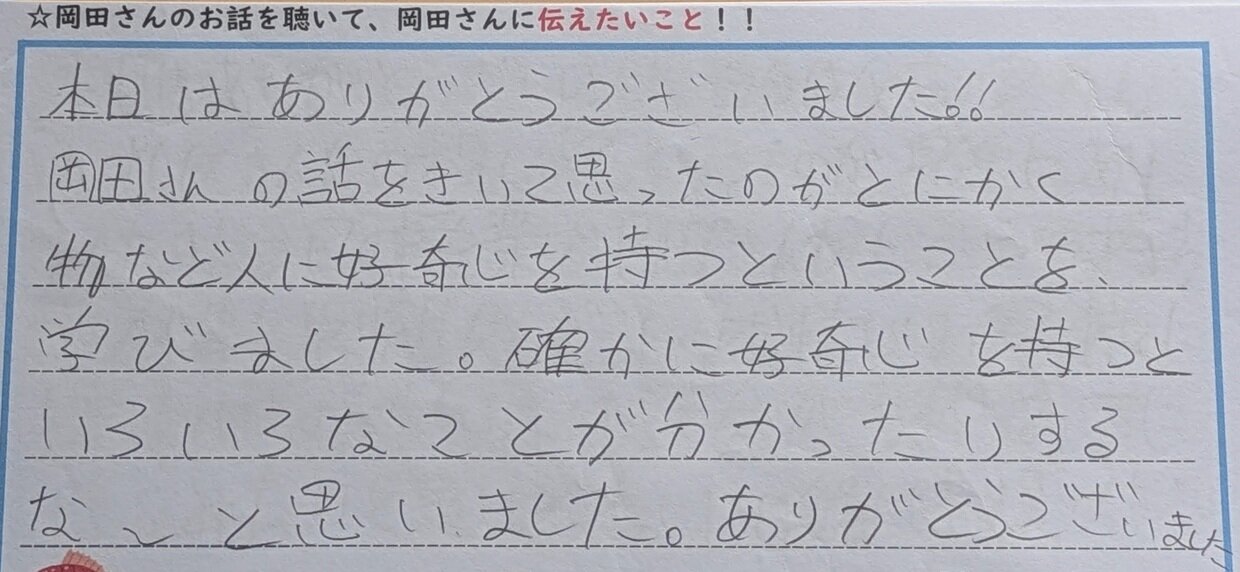 ☆岡田さんのお話を聴いて、岡田さんに伝えたいこと！！
本日はありがとうございました!!
岡田さんの話をきいて思ったのがとにかく
物など人に好奇心を持つということを、
学びました。確かに好奇心を持つと
いろいろなことが分かったりする
な〜と思いました。ありがとうございました